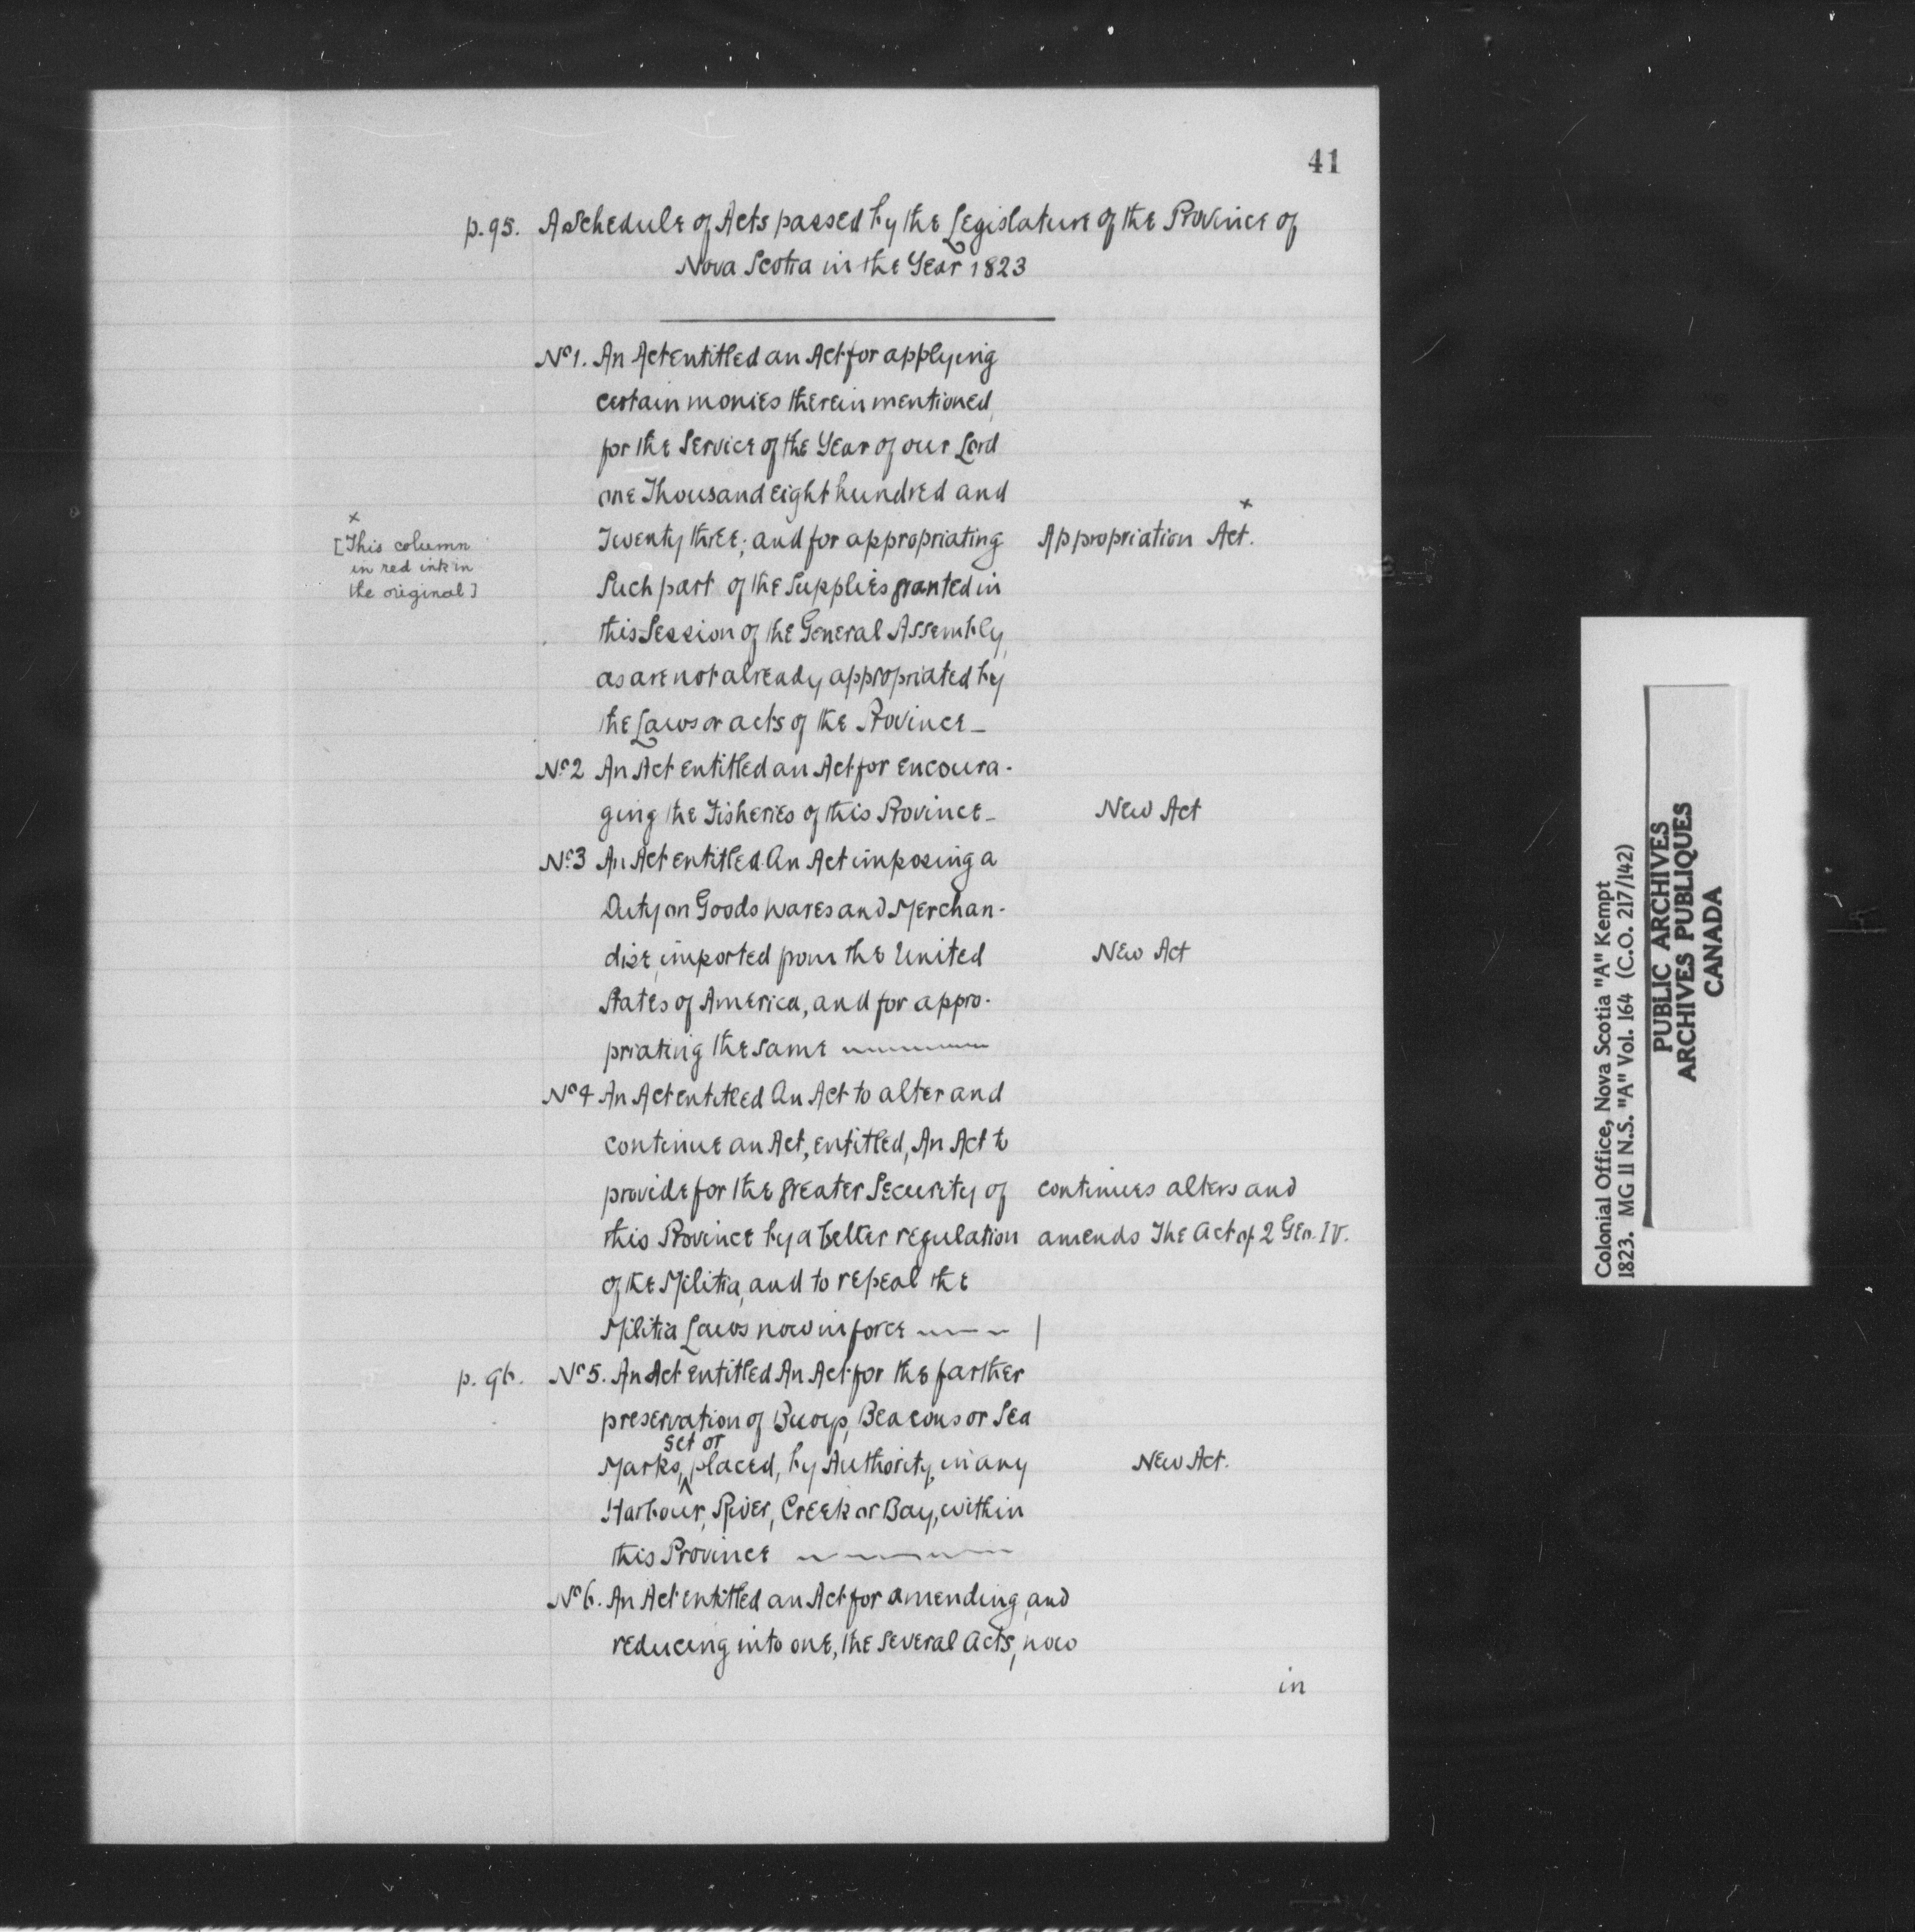 41
p. 95. A Schedule of Acts passed by the Legislature of the Province of
Nova Scotia in the Year 1823
No 1. An Act entitled an Act for applying
certain monies therein mentioned,
for the Service of the Year of our Lord
one Thousand eight hundred and
Twenty three; and for appropriating Appropriation Act. x
x
[This column
in red ink in
the original]
Such part of the Supplies granted in
this Session of the General Assembly,
as are not already appropriated by
the Laws or acts of the Province_
No 2 An Act entitled an Act for encoura-
ging the Fisheries of this Province_ New Act
No 3 An Act entitled An Act imposing a
Duty on Goods wares and Merchan-
dize, imported from the United New Act
States of America, and for appro-
priating the same
No 4 An Act entitled An Act to alter and
continue an Act, entitled, An Act to
provide for the greater Security of continues alters and
this Province by a better regulation amends The Act of 2 Geo. IV.
of the Militia, and to repeal the
Militia Laws now in force
p. 96. No 5. An Act entitled An Act for the farther
preservation of Buoys, Beacons or Sea
set or
Marks, ^ placed, by Authority, in any New Act.
Harbour, River, Creek or Bay, within
this Province
No 6. An Act entitled an Act for amending, and
reducing into one, the several Acts, now
in
Colonial Office, Nova Scotia "A" Kempt
1823. MG 11 N.S. "A" Vol. 164 (C.O. 217/142)
PUBLIC ARCHIVES
ARCHIVES PUBLIQUES
CANADA